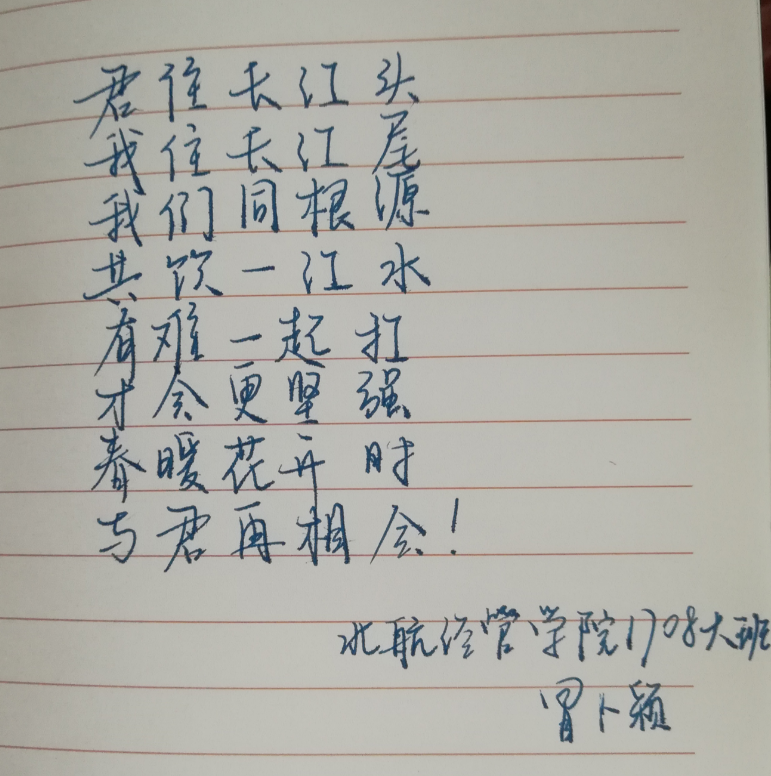 君住长江头
我住长江尾
我们同根源
共饮一江水
有难一起扛
才会更坚强
春暖花开时
与君再相会！
北航经管学院1708大班
冒卜颖